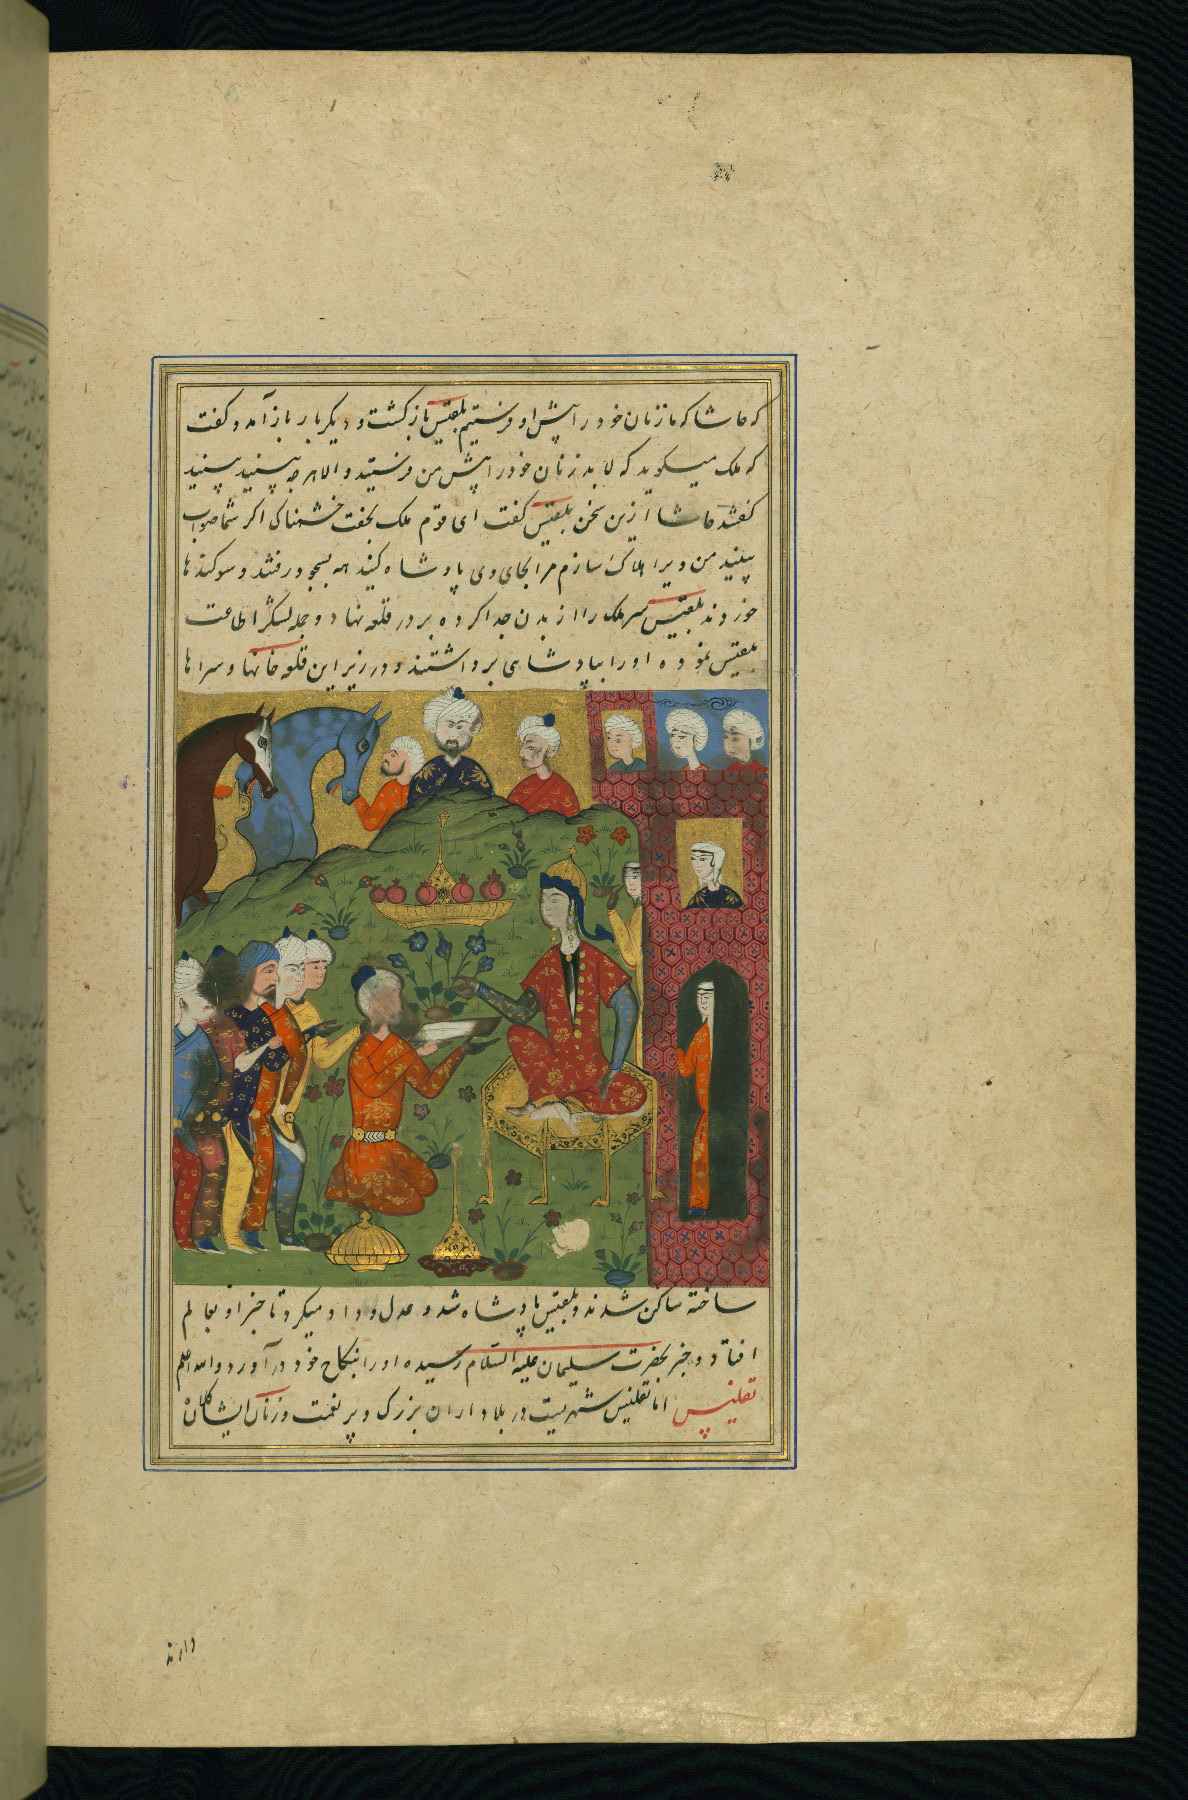 که حاشا که ما زنان خود را پیش او فرستیم بلقیس بازگشت و دیگر بار باز آمد و گفت
که ملک میگوید که لا بد زنان خود را پیش من فرستید و الا هر چه بینید بینید
گفتند حاشا ازین سخن بلقیس گفت ای قوم ملک بخفت خشمناک اکر شما صواب
بینید من ویرا هلاک سازم مرا بجای وی پادشاه کنید همه بسجود رفتند و سوکندها
خوردند بلقیس سر ملک را از بدن جدا کرده بر در قلعه نهاد و جمله لشکر اطاعت
بلقیس نموده او را بپادشاهی برداشتند و در زیر این قلعه خانها و سراها
ساخته ساکن شدند و بلقیس پادشاه شد و عدل و داد میکرد تا خبر او بعالم
افتاد و خبر بحضرت سلیمان علیه السلام رسیده او را بنکاح خود در آورد والله اعلم
تفلیس اما تفلیس شهریست در بلاد اران بزرک و پر نعمت و زنان ایشان کلاه
دارند